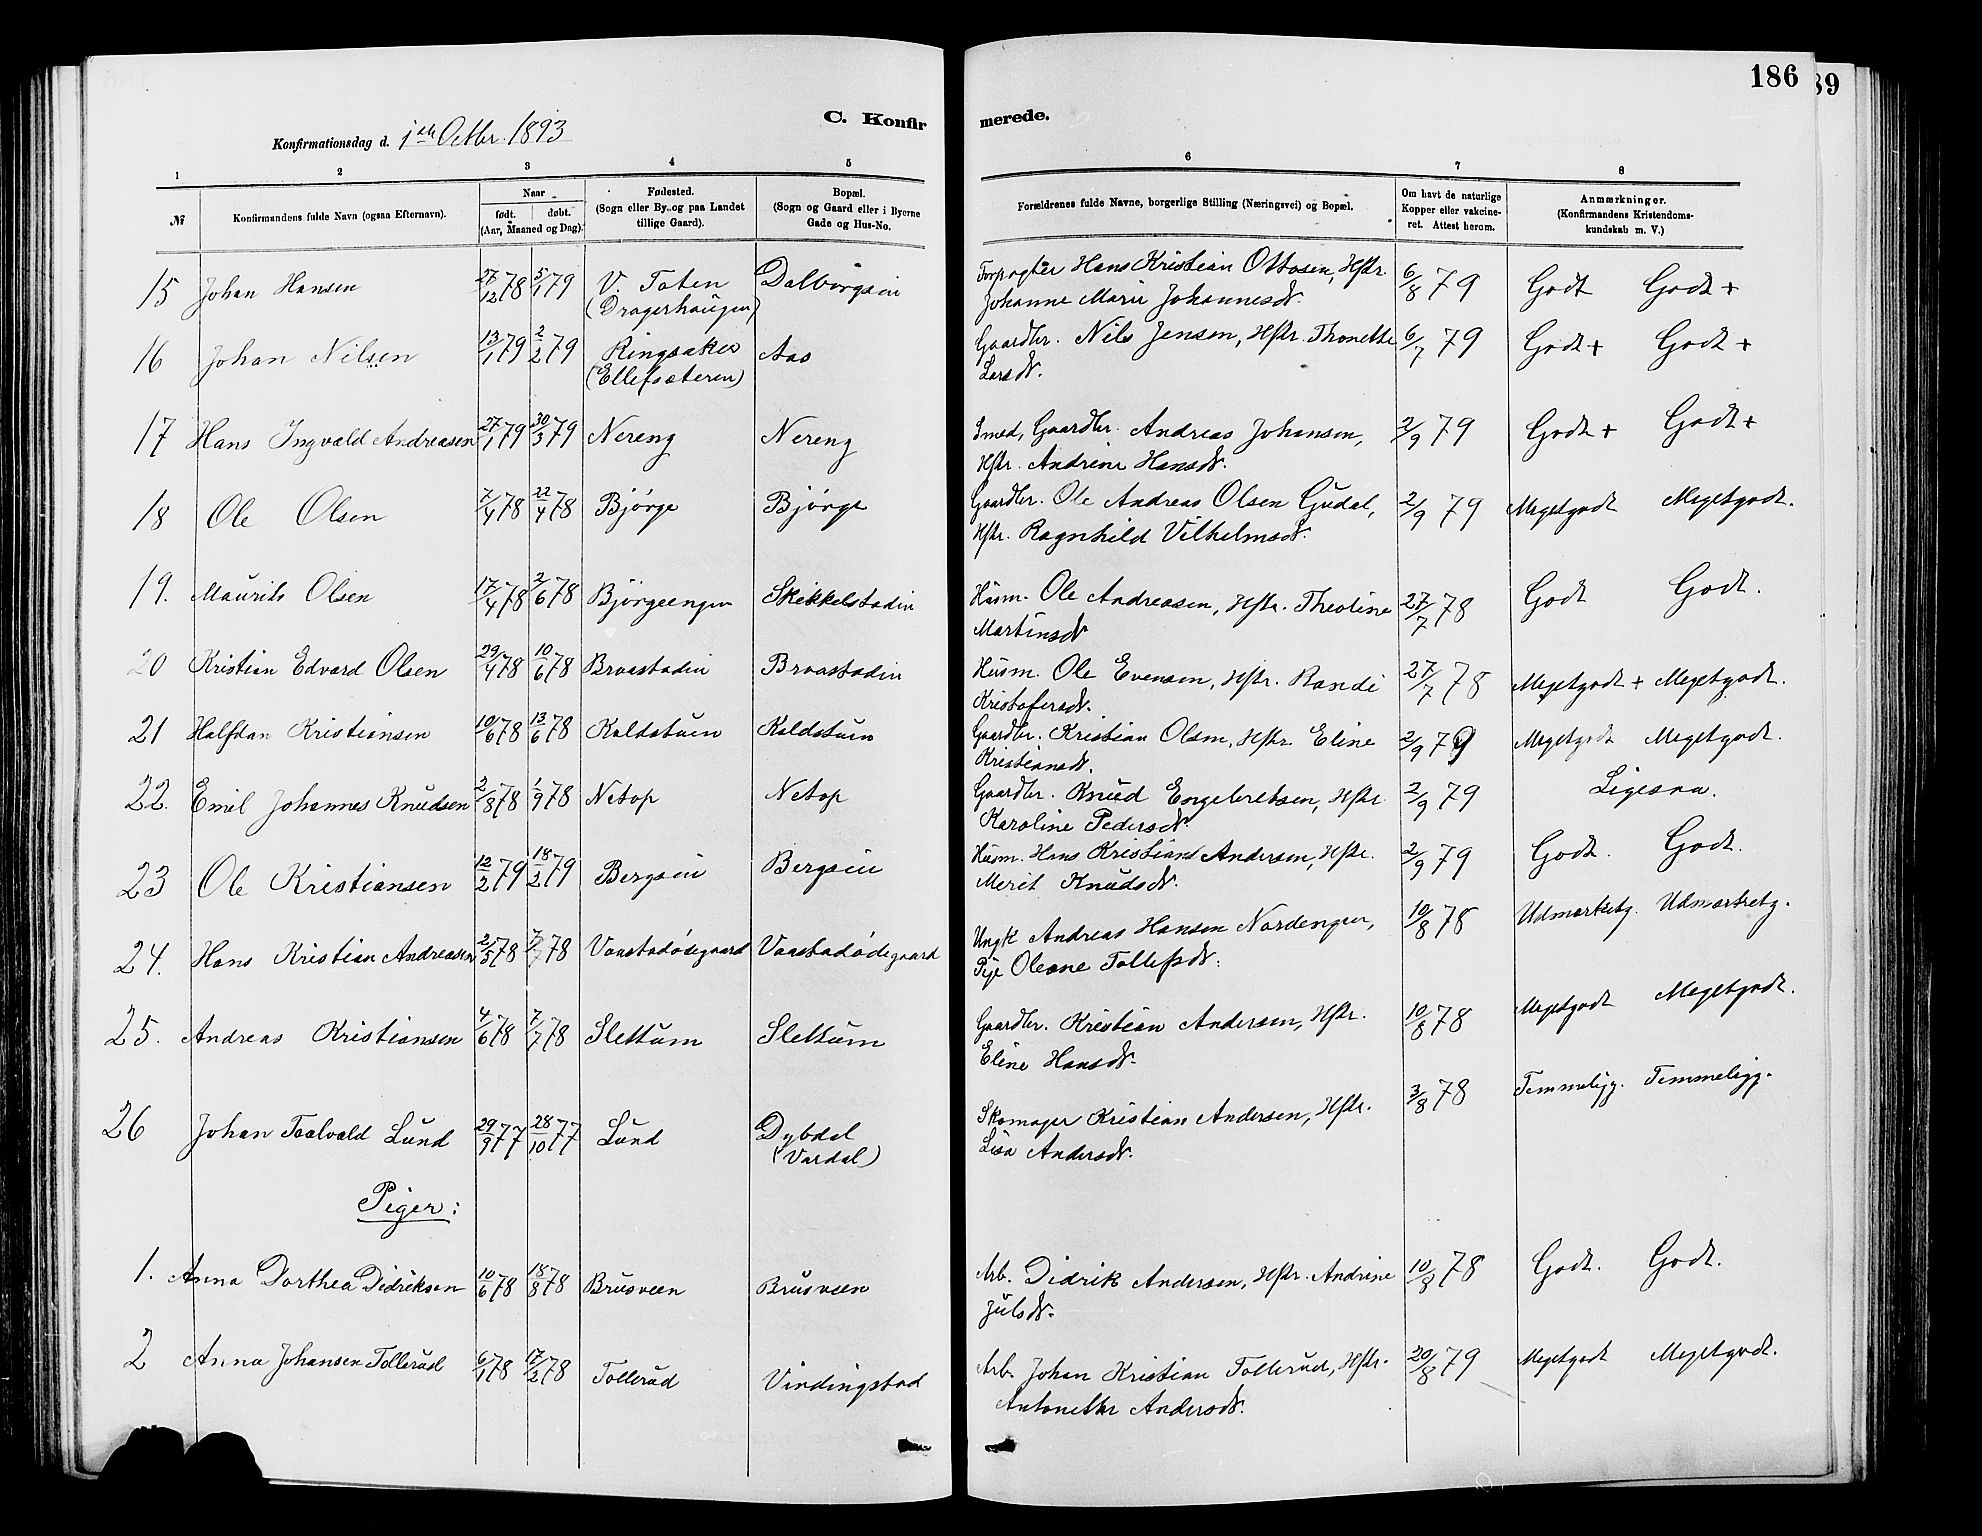 186
89
C. Konfir
merede.
Konfirmationsdag d. 1ste Octbr. 1893
1 2 3 4 5 6 7 8
№ Konfirmandens fulde Navn (ogsaa Efternavn). Naar født. døbt. (Aar, Maaned og Dag). Fødested. (Sogn eller By og paa Landet tillige Gaard). Bopæl. (Sogn og Gaard eller i Byerne Gade og Hus-No. Forældrenes fulde Navne, borgerlige Stilling (Næringsvei) og Bopæl. Om havt de naturlige Kopper eller vakcineret. Attest herom. Anmærkninger. (Konfirmandens Kristendomskundskab m. V.)
15 Johan Hansen 27/12 78 5/1 79 V. Toten Dalborgsein Forpagter Hans Kristian Ottosen, Hstr. 6/8 79 Godt Godt +
(Dragerhaugen) Johanne Marie Johannesdt.
16 Johan Nilsen 13/1 79 2/2 79 Ringsaker Aas Gaardbr. Nils Jensen, Hstr. Thonette 6/7 79 Godt + Godt +
(Ellefsæteren) Larsdt.
17 Hans Ingvald Andreasen 27/1 79 30/3 79 Nereng Nereng Smed, Gaardbr. Andreas Johansen, 2/9 79 Godt + Godt +
Hstr. Andrine Hansdt.
18 Ole Olsen 7/4 78 22/4 78 Bjørge Bjørge Gaardbr. Ole Andreas Olsen Gudal, 2/9 79 Megetgodt Megetgodt.
Hstr. Ragnhild Vilhelmsdt.
19. Maurits Olsen 17/4 78 2/6 78 Bjørgeengen Skikkelstadin Husm. Ole Andreasen, Hstr. Theoline 27/7 78 Godt Godt.
Martinsdt
20 Kristian Edvard Olsen 29/4 78 10/6 78 Braastadin Braastadin Husm. Ole Evensen, Hstr. Randi 27/7 78 Megetgodt + Megetgodt.
Kristofersdt.
21 Halfdan Kristiansen 10/6 78 13/6 78 Kaldstuen Kaldstuen Gaardbr. Kristian Olsen, Hstr. Eline 2/9 79 Megetgodt Megetgodt.
Kristiansdt.
22. Emil Johannes Knudsen 2/8 78 1/9 78 Netop Netop Gaardbr. Knud Engebretsen, Hstr 2/9 79 Ligesaa.
Karoline Pedersdt.
23 Ole Kristiansen 12/2 79 18/2 79 Bergsein Bergsein Husm. Hans Kristians Andersen, Hstr. 2/9 79 Godt. Godt.
Merit Knudsdt.
24. Hans Kristian Andreasen 2/5 78 7/7 78 Vaastadødegaard Vaastadødegaard Ungk Andreas Hansen Nordengen, 10/8 78 Udmærketg. Udmærketg.
Pige Oleane Tollefsdt.
25. Andreas Kristiansen 4/6 78 7/7 78 Slettum Slettum Gaardbr. Kristian Andersen, Hstr. 10/8 78 Megetgodt Megetgodt.
Eline Hansdt.
26 Johan Taalvald Lund 29/9 77 28/10 77 Lund Dybdal Skomager Kristian Andersen, Hstr. 3/8 78 Temmeligg. Temmeligg.
(Vardal) Lisa Andersdt.
Piger:
1. Anna Dorthea Didriksen 10/6 78 18/8 78 Brusveen Brusveen Arb. Didrik Andersen, Hstr. Andrine 10/8 78 Godt. Godt.
Julsdt.
2 Anna Johansen Tollerud 6/1 78 17/2 78 Tollerud Vindingstad Arb. Johan Kristian Tollerud, Hstr. 20/8 79 Megetgodt Megetgodt.
Antonette Andersdt.